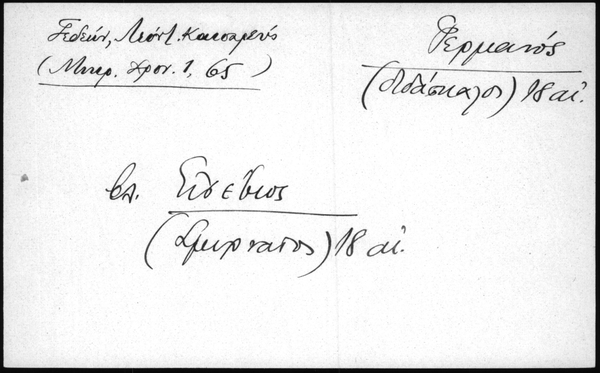 Γεδεών, Λεόντ. Καισαρεύς
(Μικρ. Χρον. 1, 65)
Γερμανός
(διδάσκαλος) 18 αἰ.
βλ. Εὐσέβιος
(Σμυρναῖος) 18 αἰ.